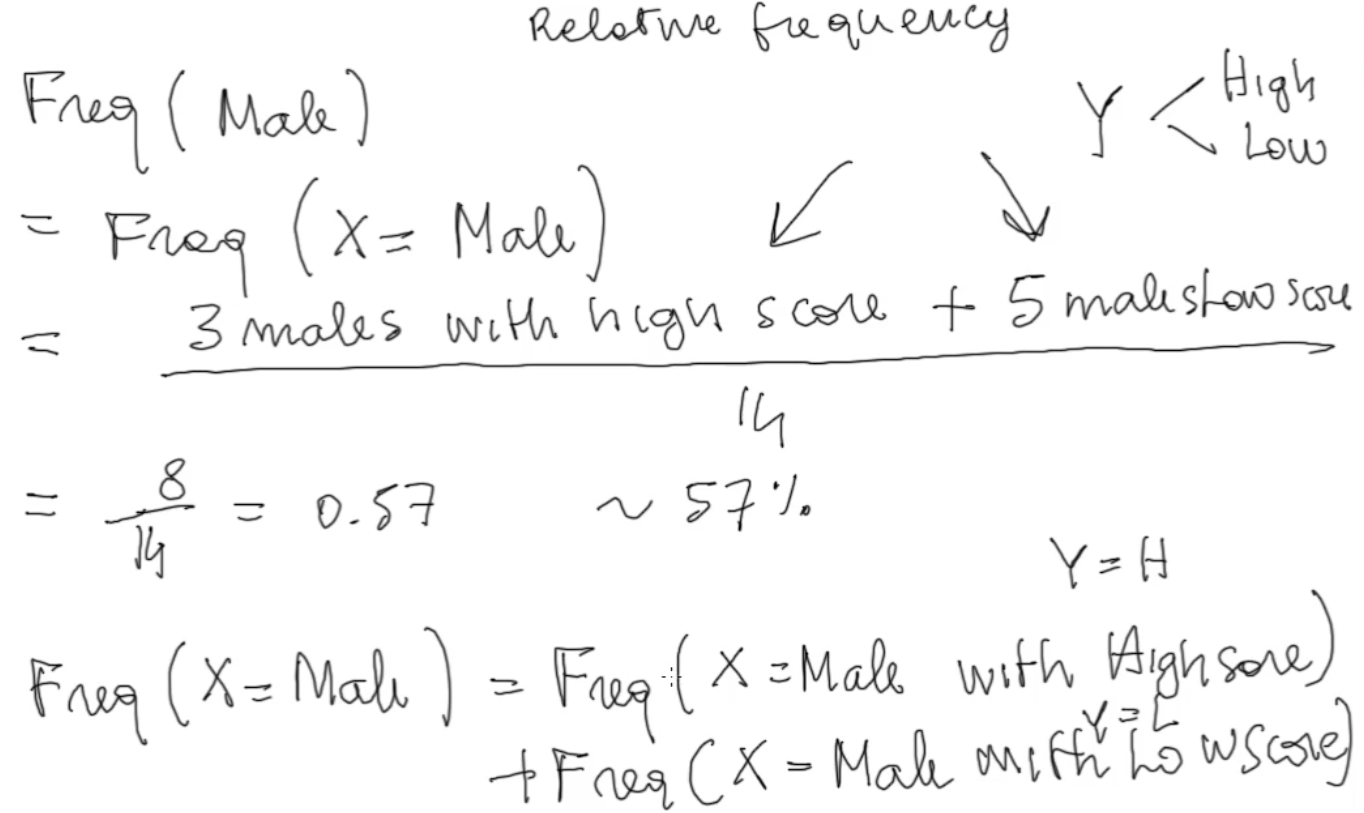 Relative frequency
Freq ( Male )
Y < High
Low
= Freq ( X = Male )
= 3 males with high score + 5 males Low score
14
= 8/14 = 0.57 ~ 57 %
Y = H
Freq ( X = Male ) = Freq ( X = Male with High score )
Y = L
+ Freq ( X = Male with Low score )